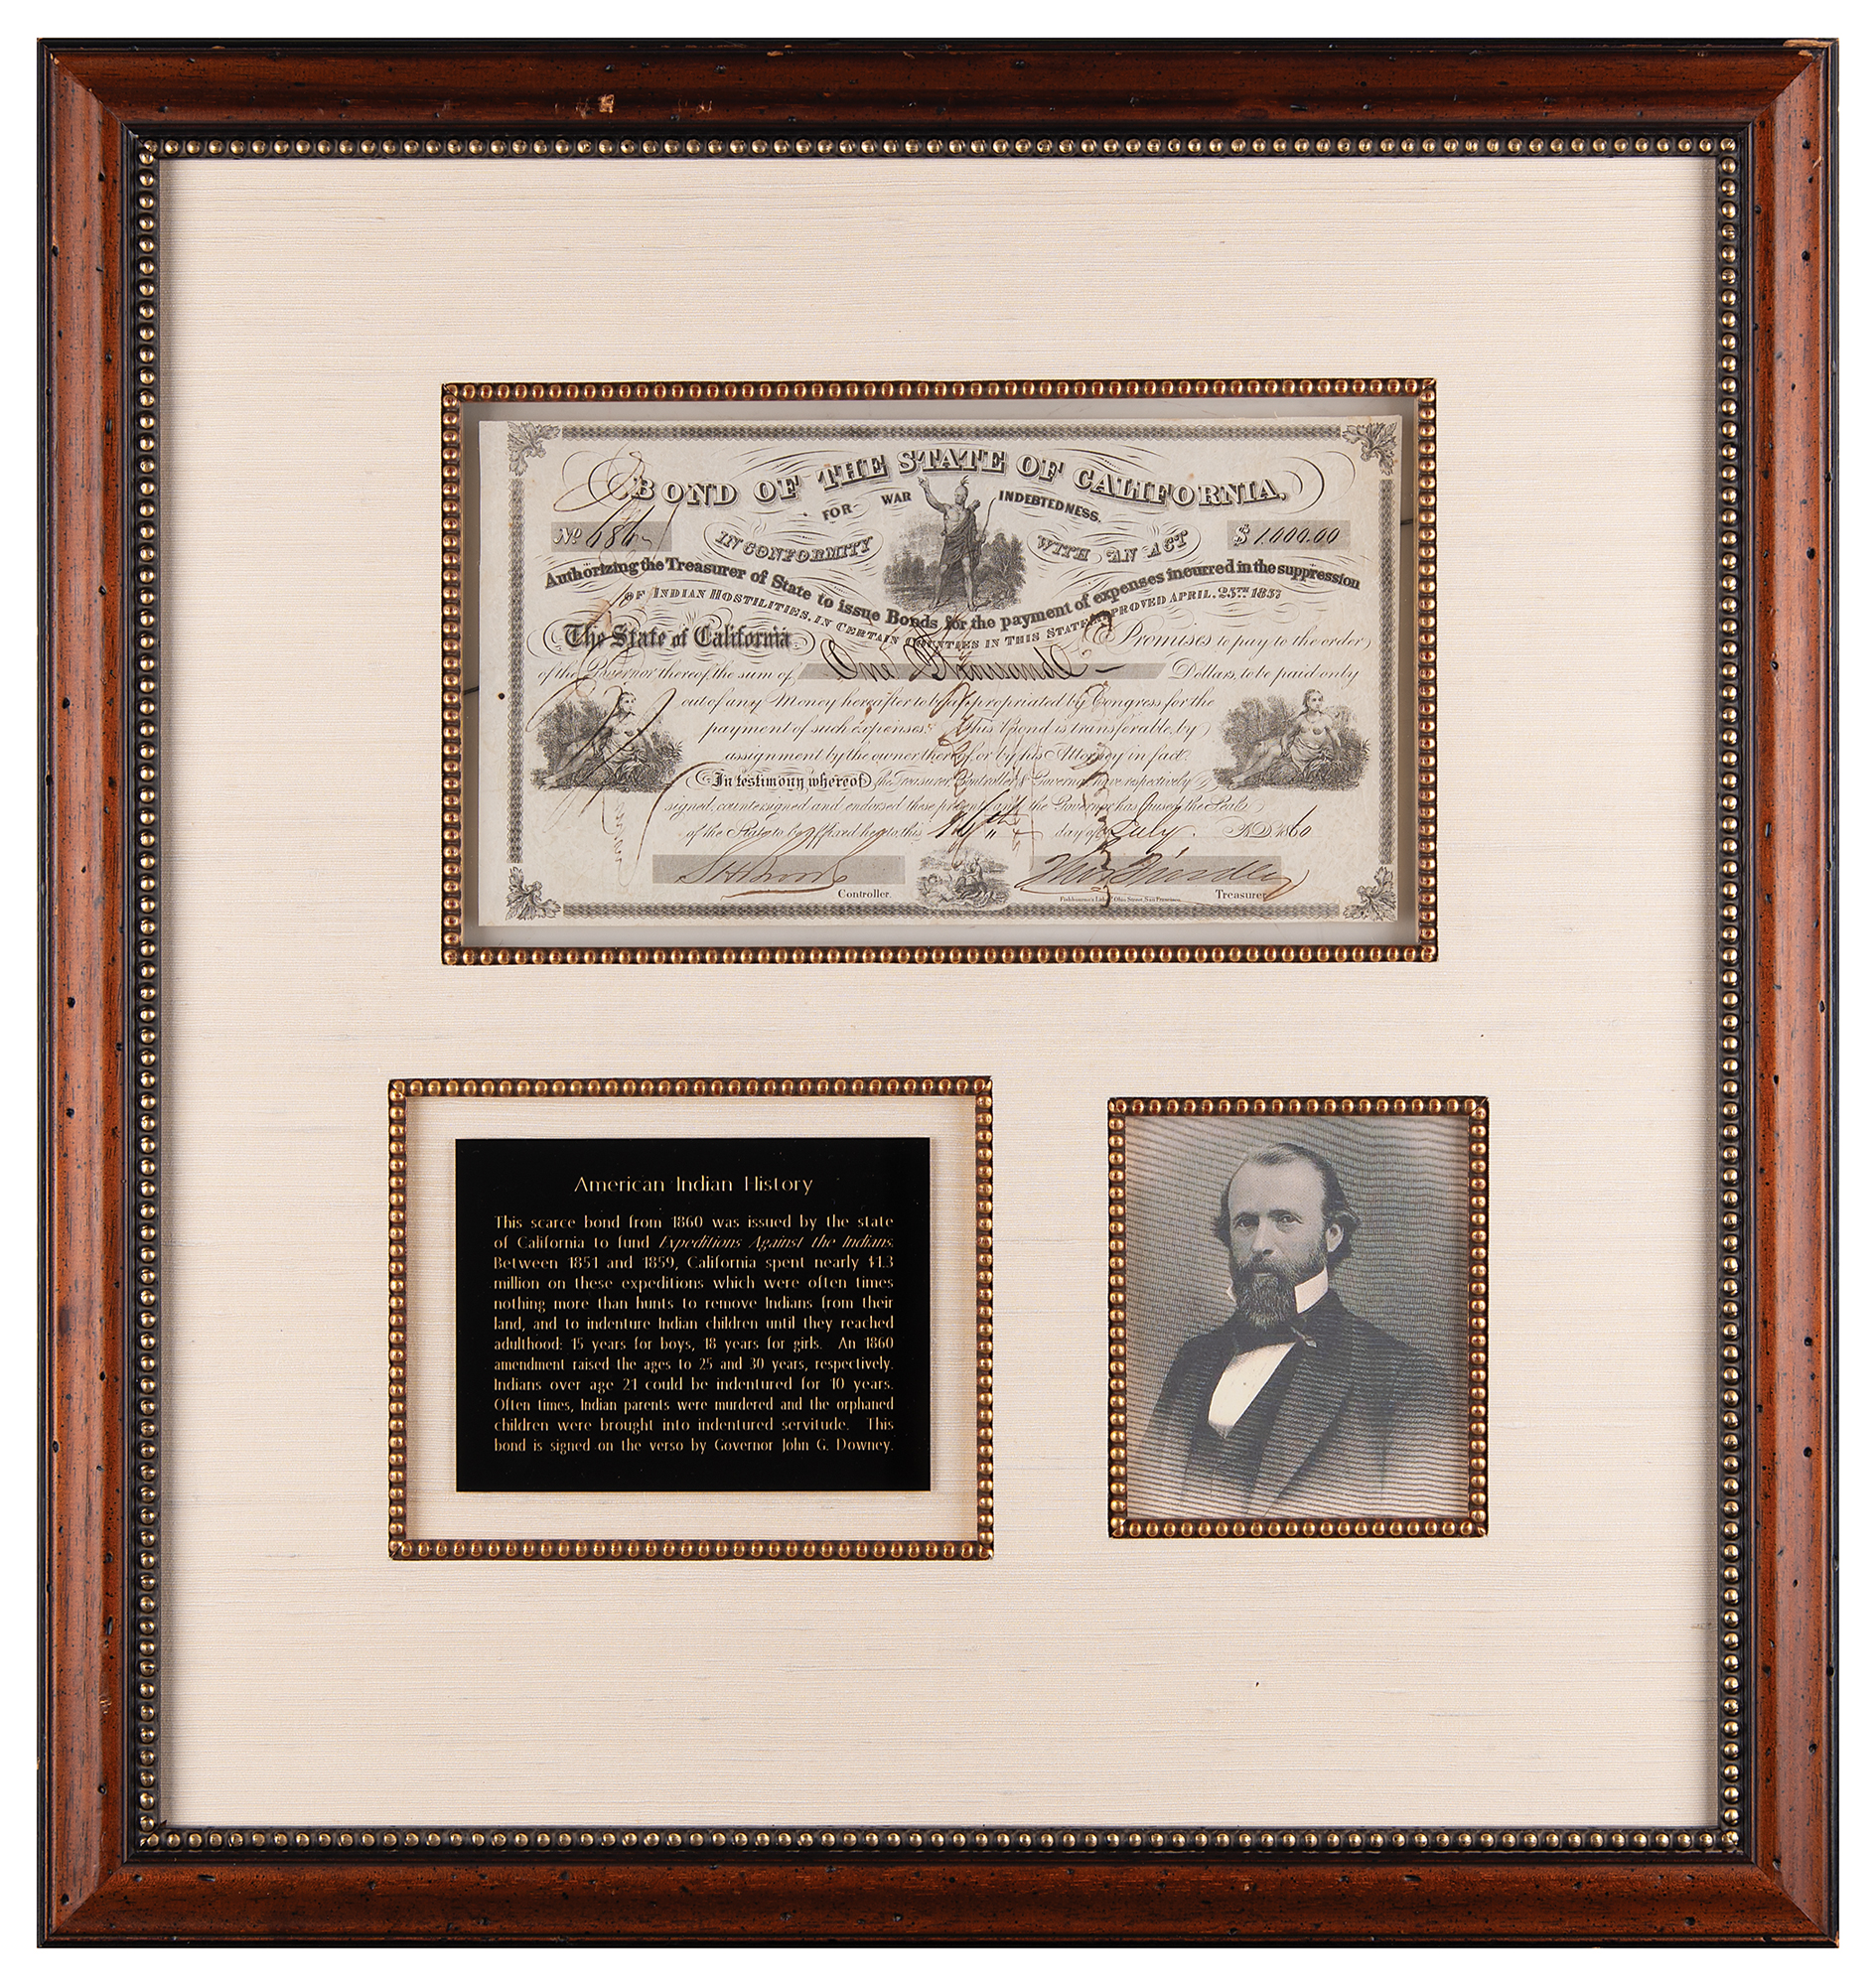 BOND OF THE STATE OF CALIFORNIA.
FOR WAR INDEBTEDNESS.
No 686
IN CONFORMITY WITH AN ACT
$ 1,000.00
Authorizing the Treasurer of State to issue Bonds for the payment of expenses incurred in the suppression
OF INDIAN HOSTILITIES, IN CERTAIN COUNTIES IN THIS STATE, APPROVED APRIL. 25TH 1857
The State of California Promises to pay to the order
of the Governor thereof, the sum of One Thousand Dollars, to be paid only
out of any Money hereafter to be appropriated by Congress for the
payment of such expenses. This Bond is transferable, by
assignment by the owner thereof, or by his Attorney in fact.
In testimony whereof the Treasurer, Controller & Governor have respectively
signed, countersigned and endorsed these presents and the Governor has caused the Seal
of the State to be affixed hereto this day of July. AD 1860
Controller.
Treasurer
American Indian History
This scarce bond from 1860 was issued by the state
of California to fund Expeditions Against the Indians.
Between 1851 and 1859, California spent nearly $1.3
million on these expeditions which were often times
nothing more than hunts to remove Indians from their
land, and to indenture Indian children until they reached
adulthood: 15 years for boys, 18 years for girls. An 1860
amendment raised the ages to 25 and 30 years, respectively.
Indians over age 21 could be indentured for 10 years.
Often times, Indian parents were murdered and the orphaned
children were brought into indentured servitude. This
bond is signed on the verso by Governor John G. Downey.